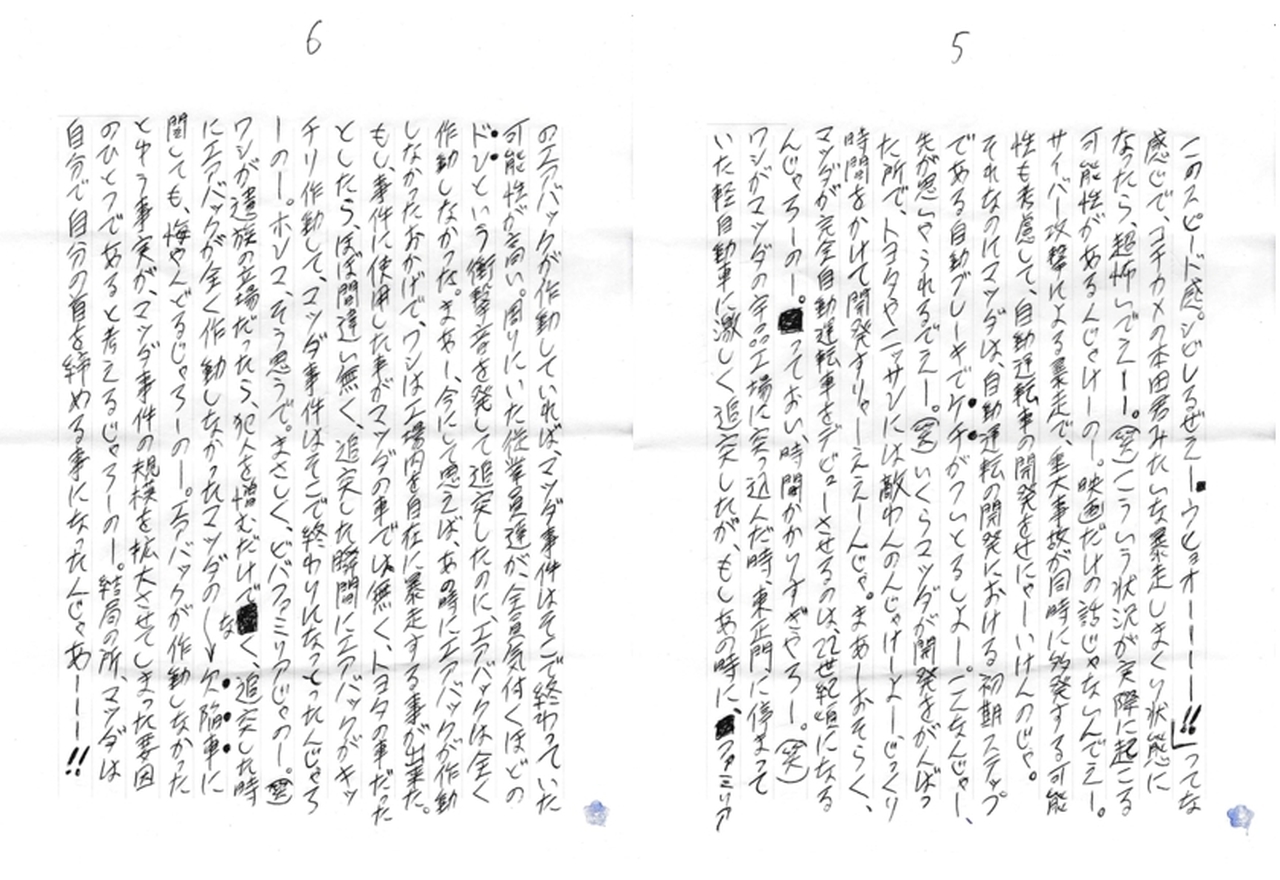 5
このスピード感。シビレるぜえー。ウヒョオーーーー!!」ってな
感じで、コチカメの本田君みたいな暴走しまくり状態に
なったら超怖いでえーー。(笑)こういう状況が実際に起こる
可能性があるんじゃけーのー。映画だけの話じゃないんでえー。
サイバー攻撃による暴走で、重大事故が同時に多発する可能
性も考慮して、自動運転車の開発をせにゃーいけんのじゃ。
それなのにマツダは、自動運転の開発における初期ステップ
である自動ブレーキでケチがついとるしよー。こんなんじゃー、
先が思いやられるでえー。(笑)いくらマツダが開発をがんばっ
た所で、トヨタやニッサンには敵わんのんじゃけーよー、じっくり
時間をかけて開発すりゃーええーんじゃ。まあーおそらく、
マツダが完全自動運転車をデビューさせるのは、22世紀頃になる
んじゃろーのー。っておい、時間かかりすぎやろー。(笑)
ワシがマツダの宇品工場に突っ込んだ時、東正門に停まって
いた軽自動車に激しく追突したが、もしあの時に、ファミリア
6
のエアバックが作動していれば、マツダ事件はそこで終わっていた
可能性が高い。周りにいた従業員達が、全員気付くほどの
ドンという衝撃音を発して追突したのに、エアバックは全く
作動しなかった。まあー、今にして思えば、あの時にエアバックが作動
しなかったおかげで、ワシは工場内を自在に暴走する事が出来た。
もし、事件に使用した車がマツダの車では無く、トヨタの車だった
としたら、ほぼ間違い無く、追突した瞬間にエアバックがキッ
チリ作動して、マツダ事件はそこで終わりになっとったんじゃろ
ーのー。ホンマ、そう思うで。まさしく、ビバファミリアじゃのー。(笑)
ワシが遺族の立場だったら、犯人を憎むだけでなく、追突した時
にエアバックが全く作動しなかったマツダの欠陥車に
関しても、悔やんどるじゃろーのー。エアバックが作動しなかった
とゆう事実が、マツダ事件の規模を拡大させてしまった要因
のひとつであると考えるじゃろーのー。結局の所、マツダは
自分で自分の首を締める事になったんじゃあーーー!!